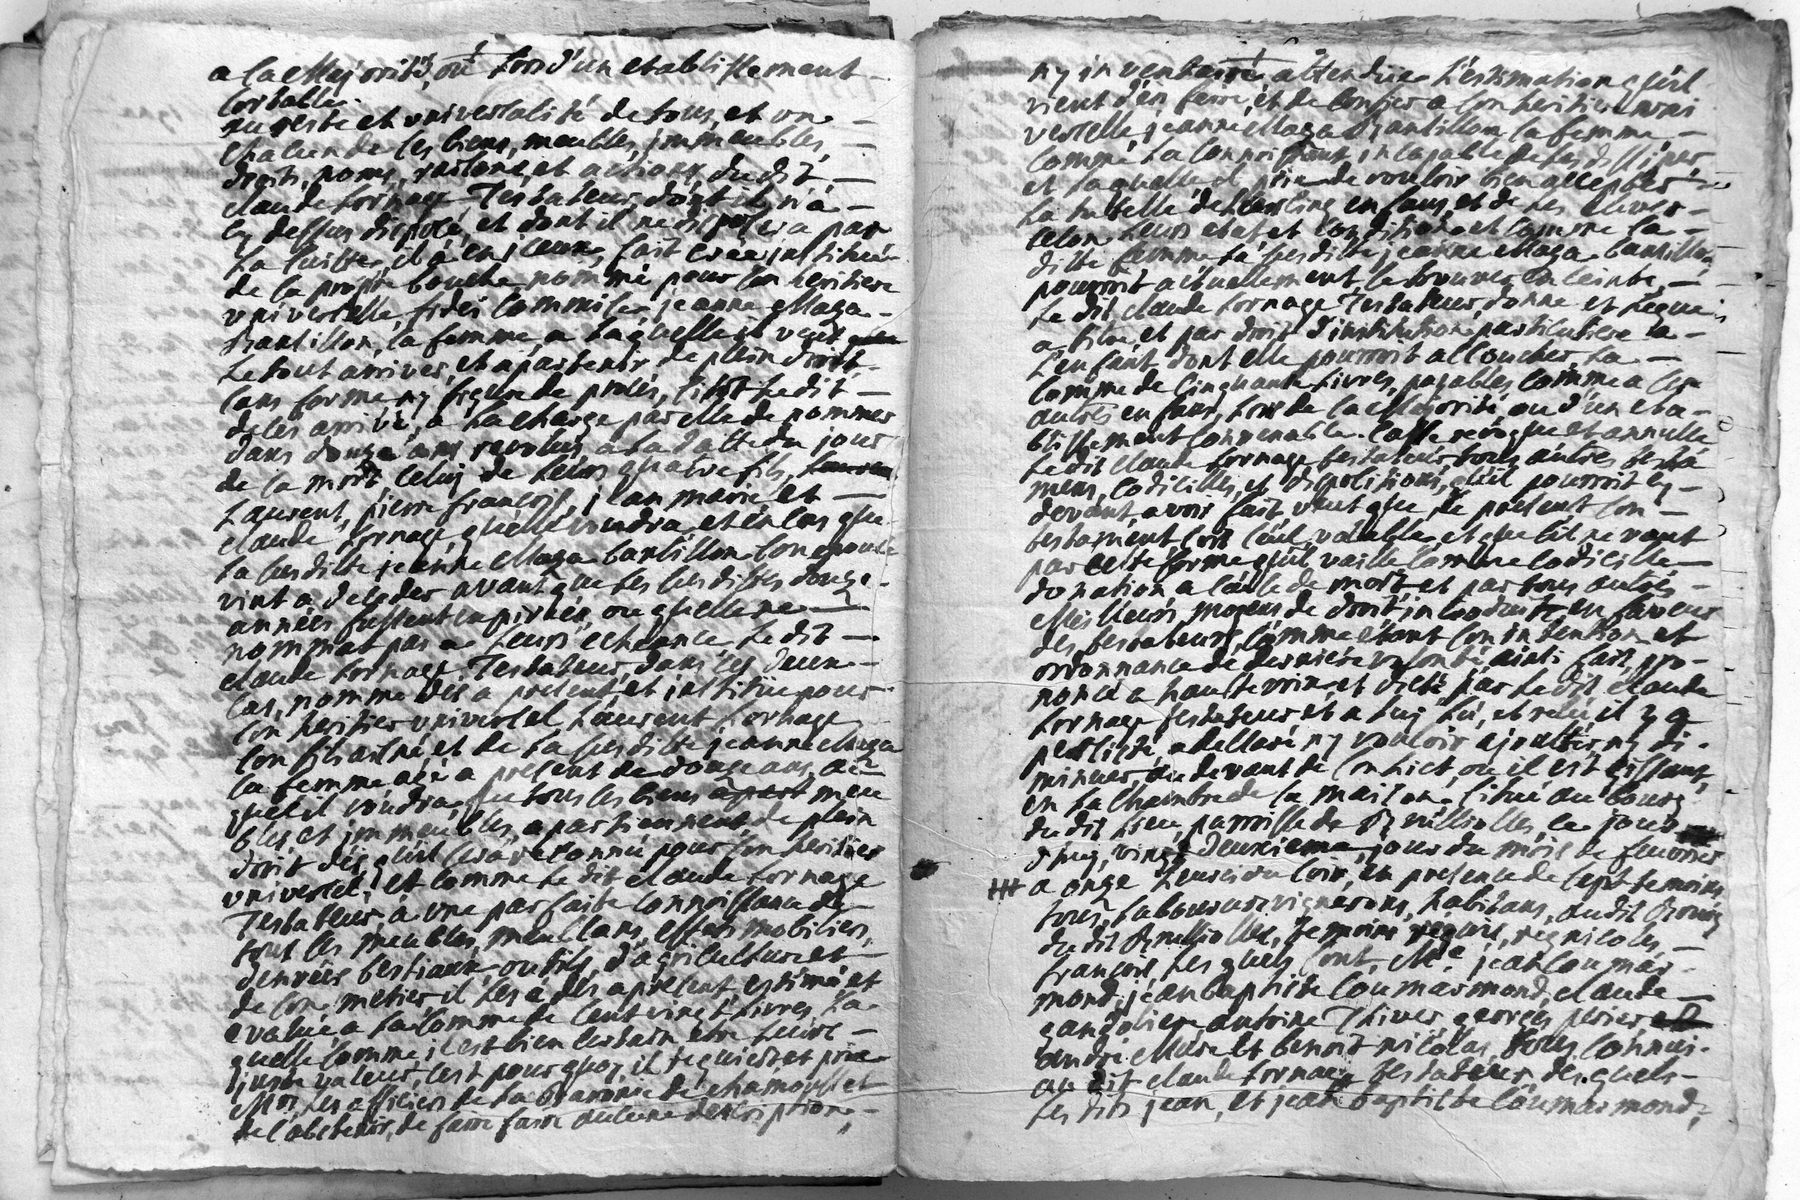 a la Majorité, ou Lors d'un etablissement
sortable.
au reste et universalité de tous, et un
chacun de ses biens, meubles, immeubles,
droits, noms, raisons, et actions, du dit
claude fornage Testateur, dont il n'á
cy dessus disposé, et dont il ne disposera par
La suitte, il á en iceux, fait créé institué
de sa propre bouche nommé pour son heritiere
universelle, fidei commise, jeanne Maga
bantillon, sa femme, a laquelle il veut
Le tout arriver, et apartenir de plein droit
sans forme ny figure de procés, sitôt Le dit
deces arrivé, á La charge par elle de nommer
dans douze ans revolus, a La datte du jour
de sa mort celuy de Leurs quatre fils,
Laurent, pierre françois, jean marie et
claude fornage, quelle voudra, et en cas que
La susditte jeanne Maga bantillon son epouse
vint a deceder avant que Les susdittes douze
années fussent expirées, ou quelle ne
nommat pas a Leurs echeance Le dit
claude fornage, Testateur, dans ces deux
cas, nomme des a present, et institüe pour
son heritier universel Laurent fornage
son fils ainé, et de La susditte jeanne Maga
sa femme agé a present de douze ans, au
quel il voudra, que tous ses biens meu
bles, et immeubles, apartiennent de plein
droit dés qu'il sera reconnu pour son heritier
universel, et comme Le dit claude fornage
Testateur, á une parfaite connoissance de
tout ses meubles, meublans, effets mobiliers,
denrées, bestiaux, outils, d'agriculture et
de son metier, il Les á dés apresent estimé et
evalué, a La somme de cent vingt Livres, La
quelle somme, il est bien certain etre Leurs
juste valeur, c'est pourquoy, il requiert et prie
Mrs Les officiers de La Baronie de chamousset
de s'abstenir, de faire faire aucune description,
ny inventaire, attendüe L'estimation qu'il
vient d'en faire, et de confier a son heritiere uni
verselle jeanne Maga bantillon sa femme
comme La connoissant, incapable de Les dissiper
et Laquelle il prie de vouloir bien accepter
La tuttelle de Leurs cinq enfans, et de Les elever
selon Leurs etat et condition, et comme sa
ditte femme La susditte jeanne Maga bantillon,
pourroit actuellement, se trouver enceinte,
Le dit claude fornage Testateur, donne et Legue
a titre, et par droit d'institution particuliere a
L'enfant dont elle pourroit accoucher, La
somme de cinquante Livres, payables comme a ses
autres enfans, Lors de sa Majorité, ou d'un eta
blissement convenable. Casse revoque et annulle
Le dit claude fornage, testateur tous autres testa
mens, codicilles, et dispositions, qu'il pourroit cy
devant, avoir fait, veut que, le present son
testament soit seul valable, et que s'il ne vaut
par cette forme qu'il vaille comme codicille
donation, a cause de mort, et par tous autres
Meilleurs, moyens de droit, introduits en faveur
des testateurs, comme étant son intention et
ordonnance de derniere volonté, ainsi fait, pro
noncé a haute voix, et dicté par Le dit claude
fornage testateur et a Luy Lû, et relû, il y a
persisté, a declaré ny vouloir ajouter, ny di
minuer, au devant de son Lict, ou il est gissant,
en La chambre de sa maison, situé au bourg
du dit Lieu, parroisse de Brussiolles, ce jour
d'huy, vingt deuxieme, jour du mois de feuvrier
a onze heures du soir, en presence de sept temoins,
tous, Laboureurs vignerons, habitans, au dit Bourg
du dit Brussiolles, Temoins réquis, regnicoles,
françois, Les quels sont, Mre jean Coumar
mond, jean baptiste Coumarmond, claude
antoine Thiver, georges perier,
andré Mure et benoit nicolas, tous, connus
au dit claude fornage Testateur, des quels
Les dits jean, et jean baptiste Coumarmond,